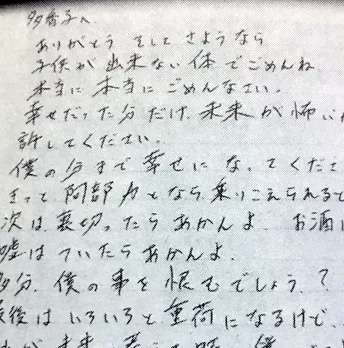 多香子へ
ありがとう そして さようなら
子供が出来ない体でごめんね
本当に 本当に ごめんなさい。
幸せだった分だけ、未来が怖い
許してください。
僕の分まで幸せになってくださ
きっと 阿部力となら乗りこえられると
次は、裏切ったらあかんよ お酒
嘘はついたらあかんよ。
多分、僕の事を恨むでしょう?
最後はいろいろと重荷になるけど
未来